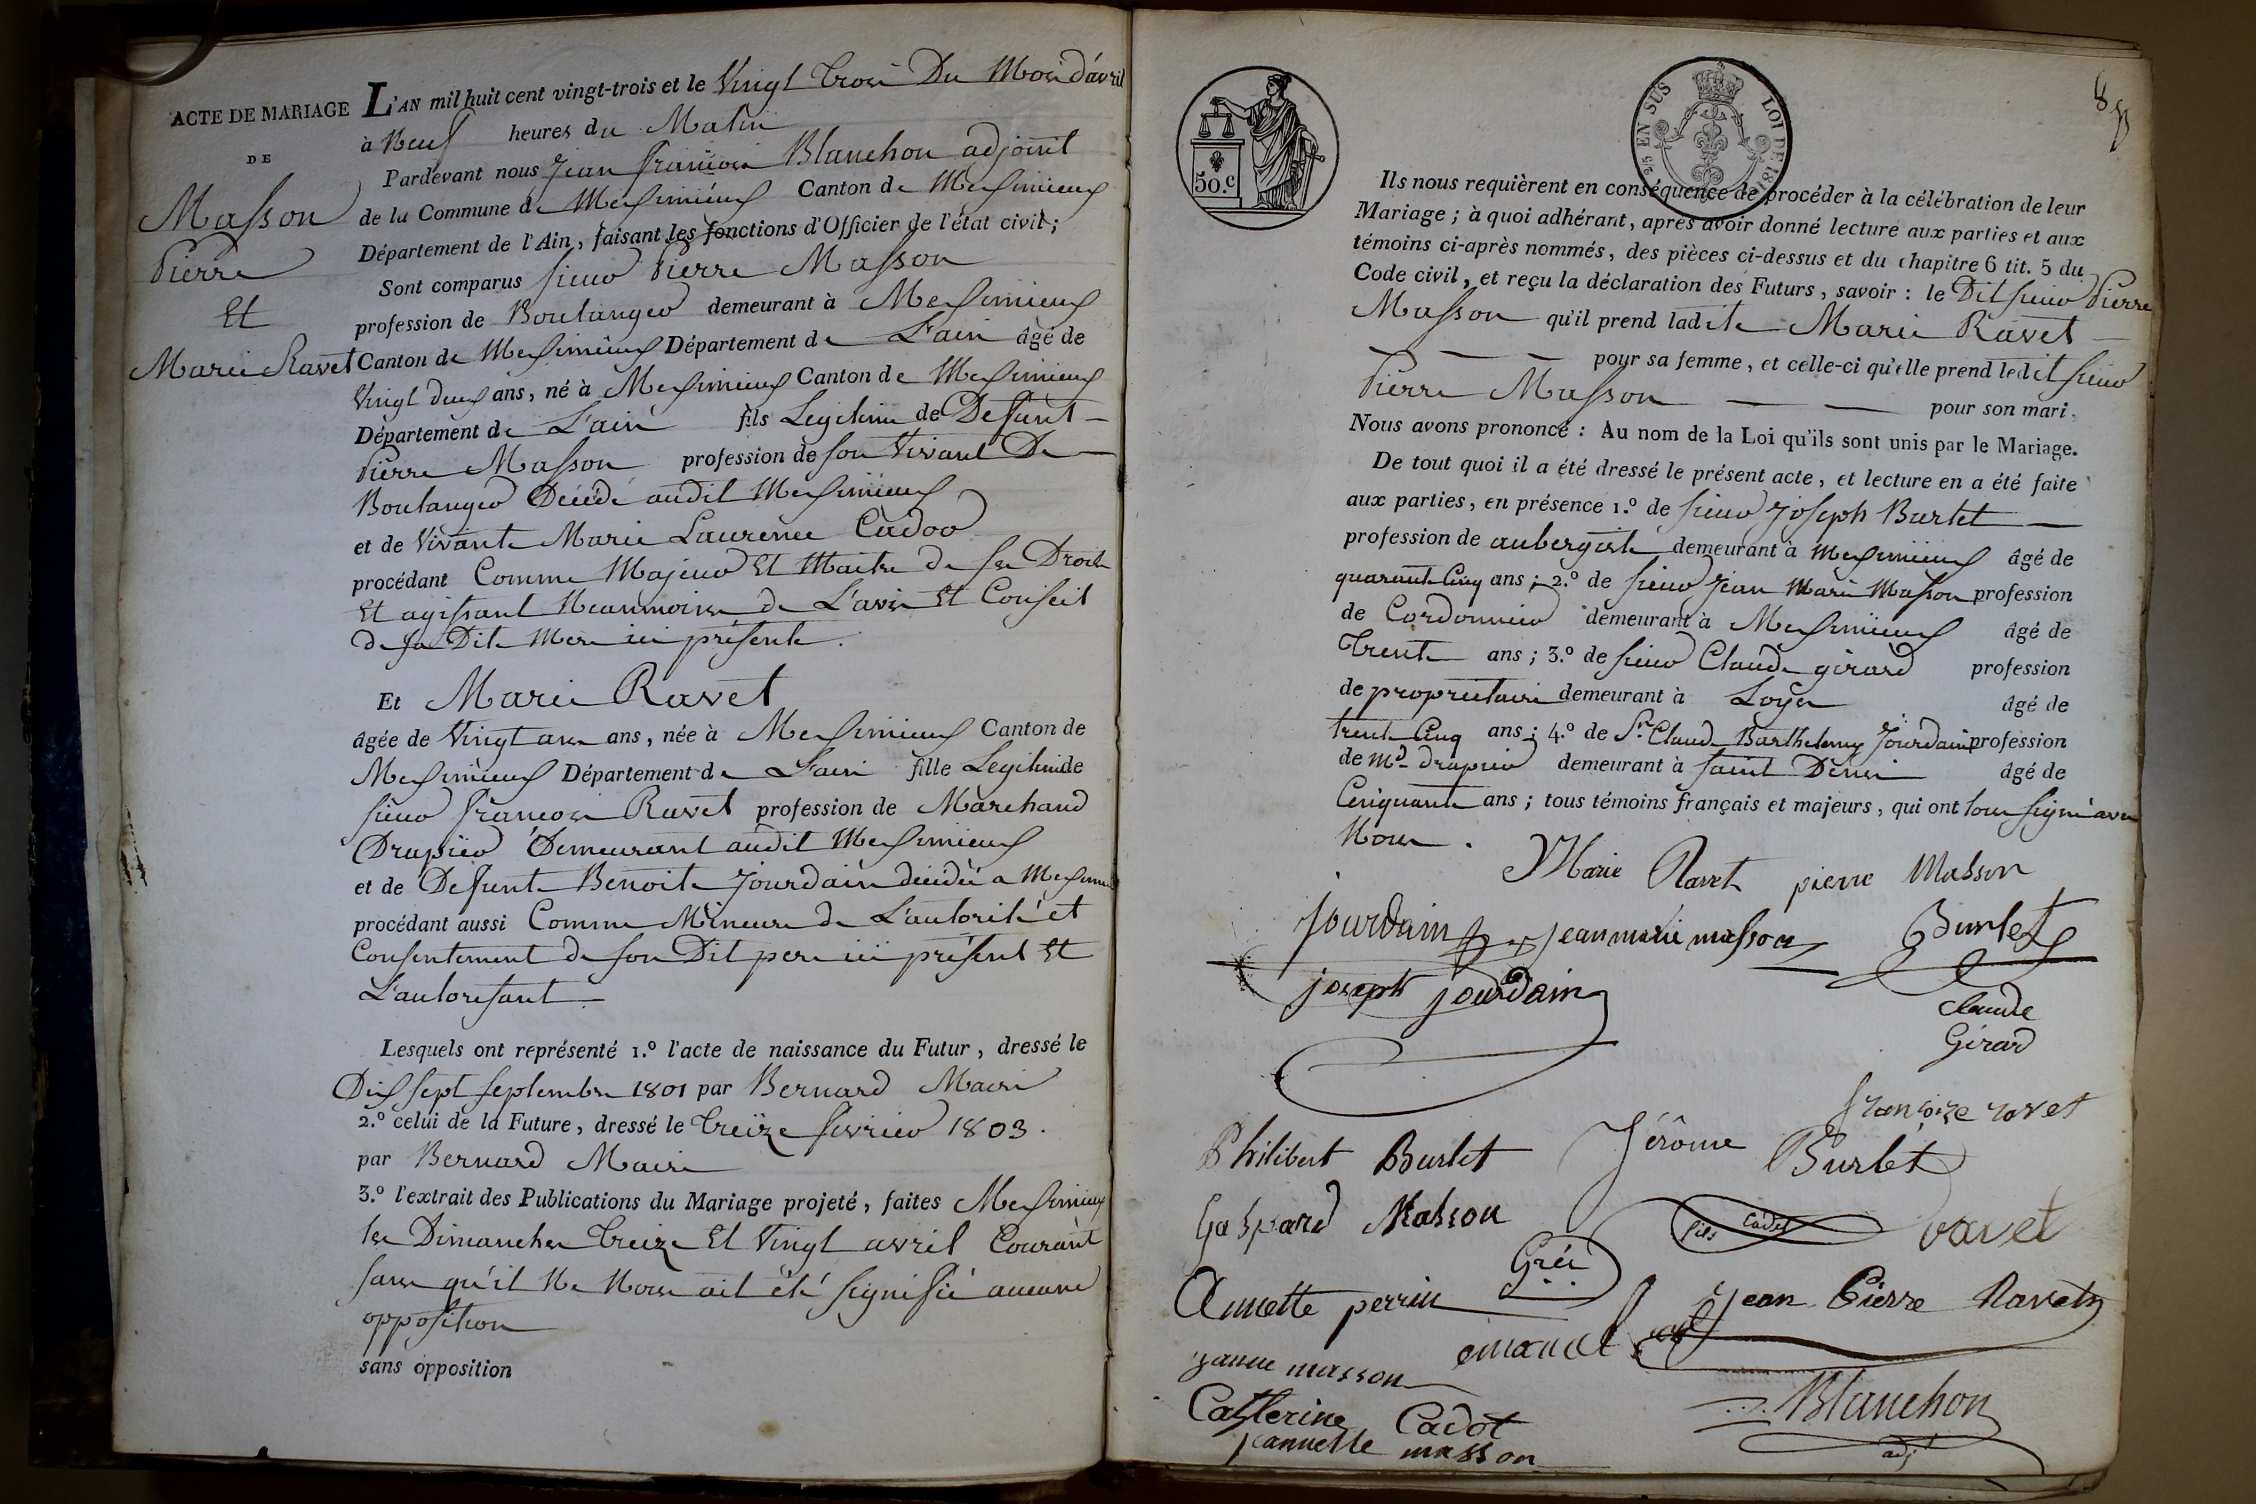 ACTE DE MARIAGE
DE
Masson
Pierre
Et
Marie Ravet
L'AN mil huit cent vingt-trois et le Vingt Trois Du Mois d'avril
à Neuf heures du Matin
Pardevant nous Jean françois Blanchon adjoint
de la Commune de Meximieux Canton de Meximieux
Département de l'Ain, faisant les fonctions d'Officier de l'état civil;
Sont comparus sieur Pierre Masson
profession de Boulanger demeurant à Meximieux
Canton de Meximieux Département de L'ain âgé de
Vingt deux ans, né à Meximieux Canton de Meximieux
Département de L'ain fils Legitime de Defunt
Pierre Masson profession de son Vivant De
Boulanger Décédé audit Meximieux
et de Vivante Marie Laurence Cadoo
procédant Comme Majeur Et Maitre de ses Droits
Et agissant Neanmoins de L'avis Et Conseil
de sa Dite Mere ici présente.
Et Marie Ravet
âgée de Vingt ans ans, née à Meximieux Canton de
Meximieux Département de L'ain fille Legitime de
sieur françois Ravet profession de Marchand
Drapier Demeurant audit Meximieux
et de Defunte Benoite Jourdain décédée a Meximieux
procédant aussi Comme Mineure de L'autorité et
Consentement de son Dit pere ici présent Et
L'autorisant
Lesquels ont représenté 1.º l'acte de naissance du Futur, dressé le
Dix sept septembre 1801 par Bernard Maire
2.º celui de la Future, dressé le Treize fevrier 1803.
par Bernard Maire
3.º l'extrait des Publications du Mariage projeté, faites Meximieux
les Dimanches Treize Et Vingt avril Courant
sans qu'il Ne Nous ait été signifié aucune
opposition
sans opposition
50.c
25 EN SUS
LOI DE 181
Ils nous requièrent en conséquence de procéder à la célébration de leur
Mariage; à quoi adhérant, après avoir donné lecture aux parties et aux
témoins ci-après nommés, des pièces ci-dessus et du chapitre 6 tit. 5 du
Code civil, et reçu la déclaration des Futurs, savoir: le Dit sieur Pierre
Masson qu'il prend ladite Marie Ravet
pour sa femme, et celle-ci qu'elle prend ledit sieur
Pierre Masson pour son mari.
Nous avons prononcé: Au nom de la Loi qu'ils sont unis par le Mariage.
De tout quoi il a été dressé le présent acte, et lecture en a été faite
aux parties, en présence 1.º de sieur Joseph Burlet
profession de aubergiste demeurant à Meximieux âgé de
quarante Cinq ans; 2.º de sieur Jean Marie Masson profession
de Cordonnier demeurant à Meximieux âgé de
Trente ans; 3.º de sieur Claude girard profession
de proprietaire demeurant à Loyes âgé de
trente Cinq ans; 4.º de Sr. Claude Barthelemy Jourdain profession
de Md. drapier demeurant à Saint Denis âgé de
Cinquante ans; tous témoins français et majeurs, qui ont tous signé avec
Nous.
Marie Ravet pierre Masson
jourdain jean marie masson Burlet
joseph jourdain
Claude
Girard
françoise ravet
Philibert Burlet Jérôme Burlet
Gaspard Masson fils Cadet ravet
Annette perrin Gréi Jean Pierre Ravet
janne masson
Blanchon
adjt
Catherine Cadot
jeannette masson